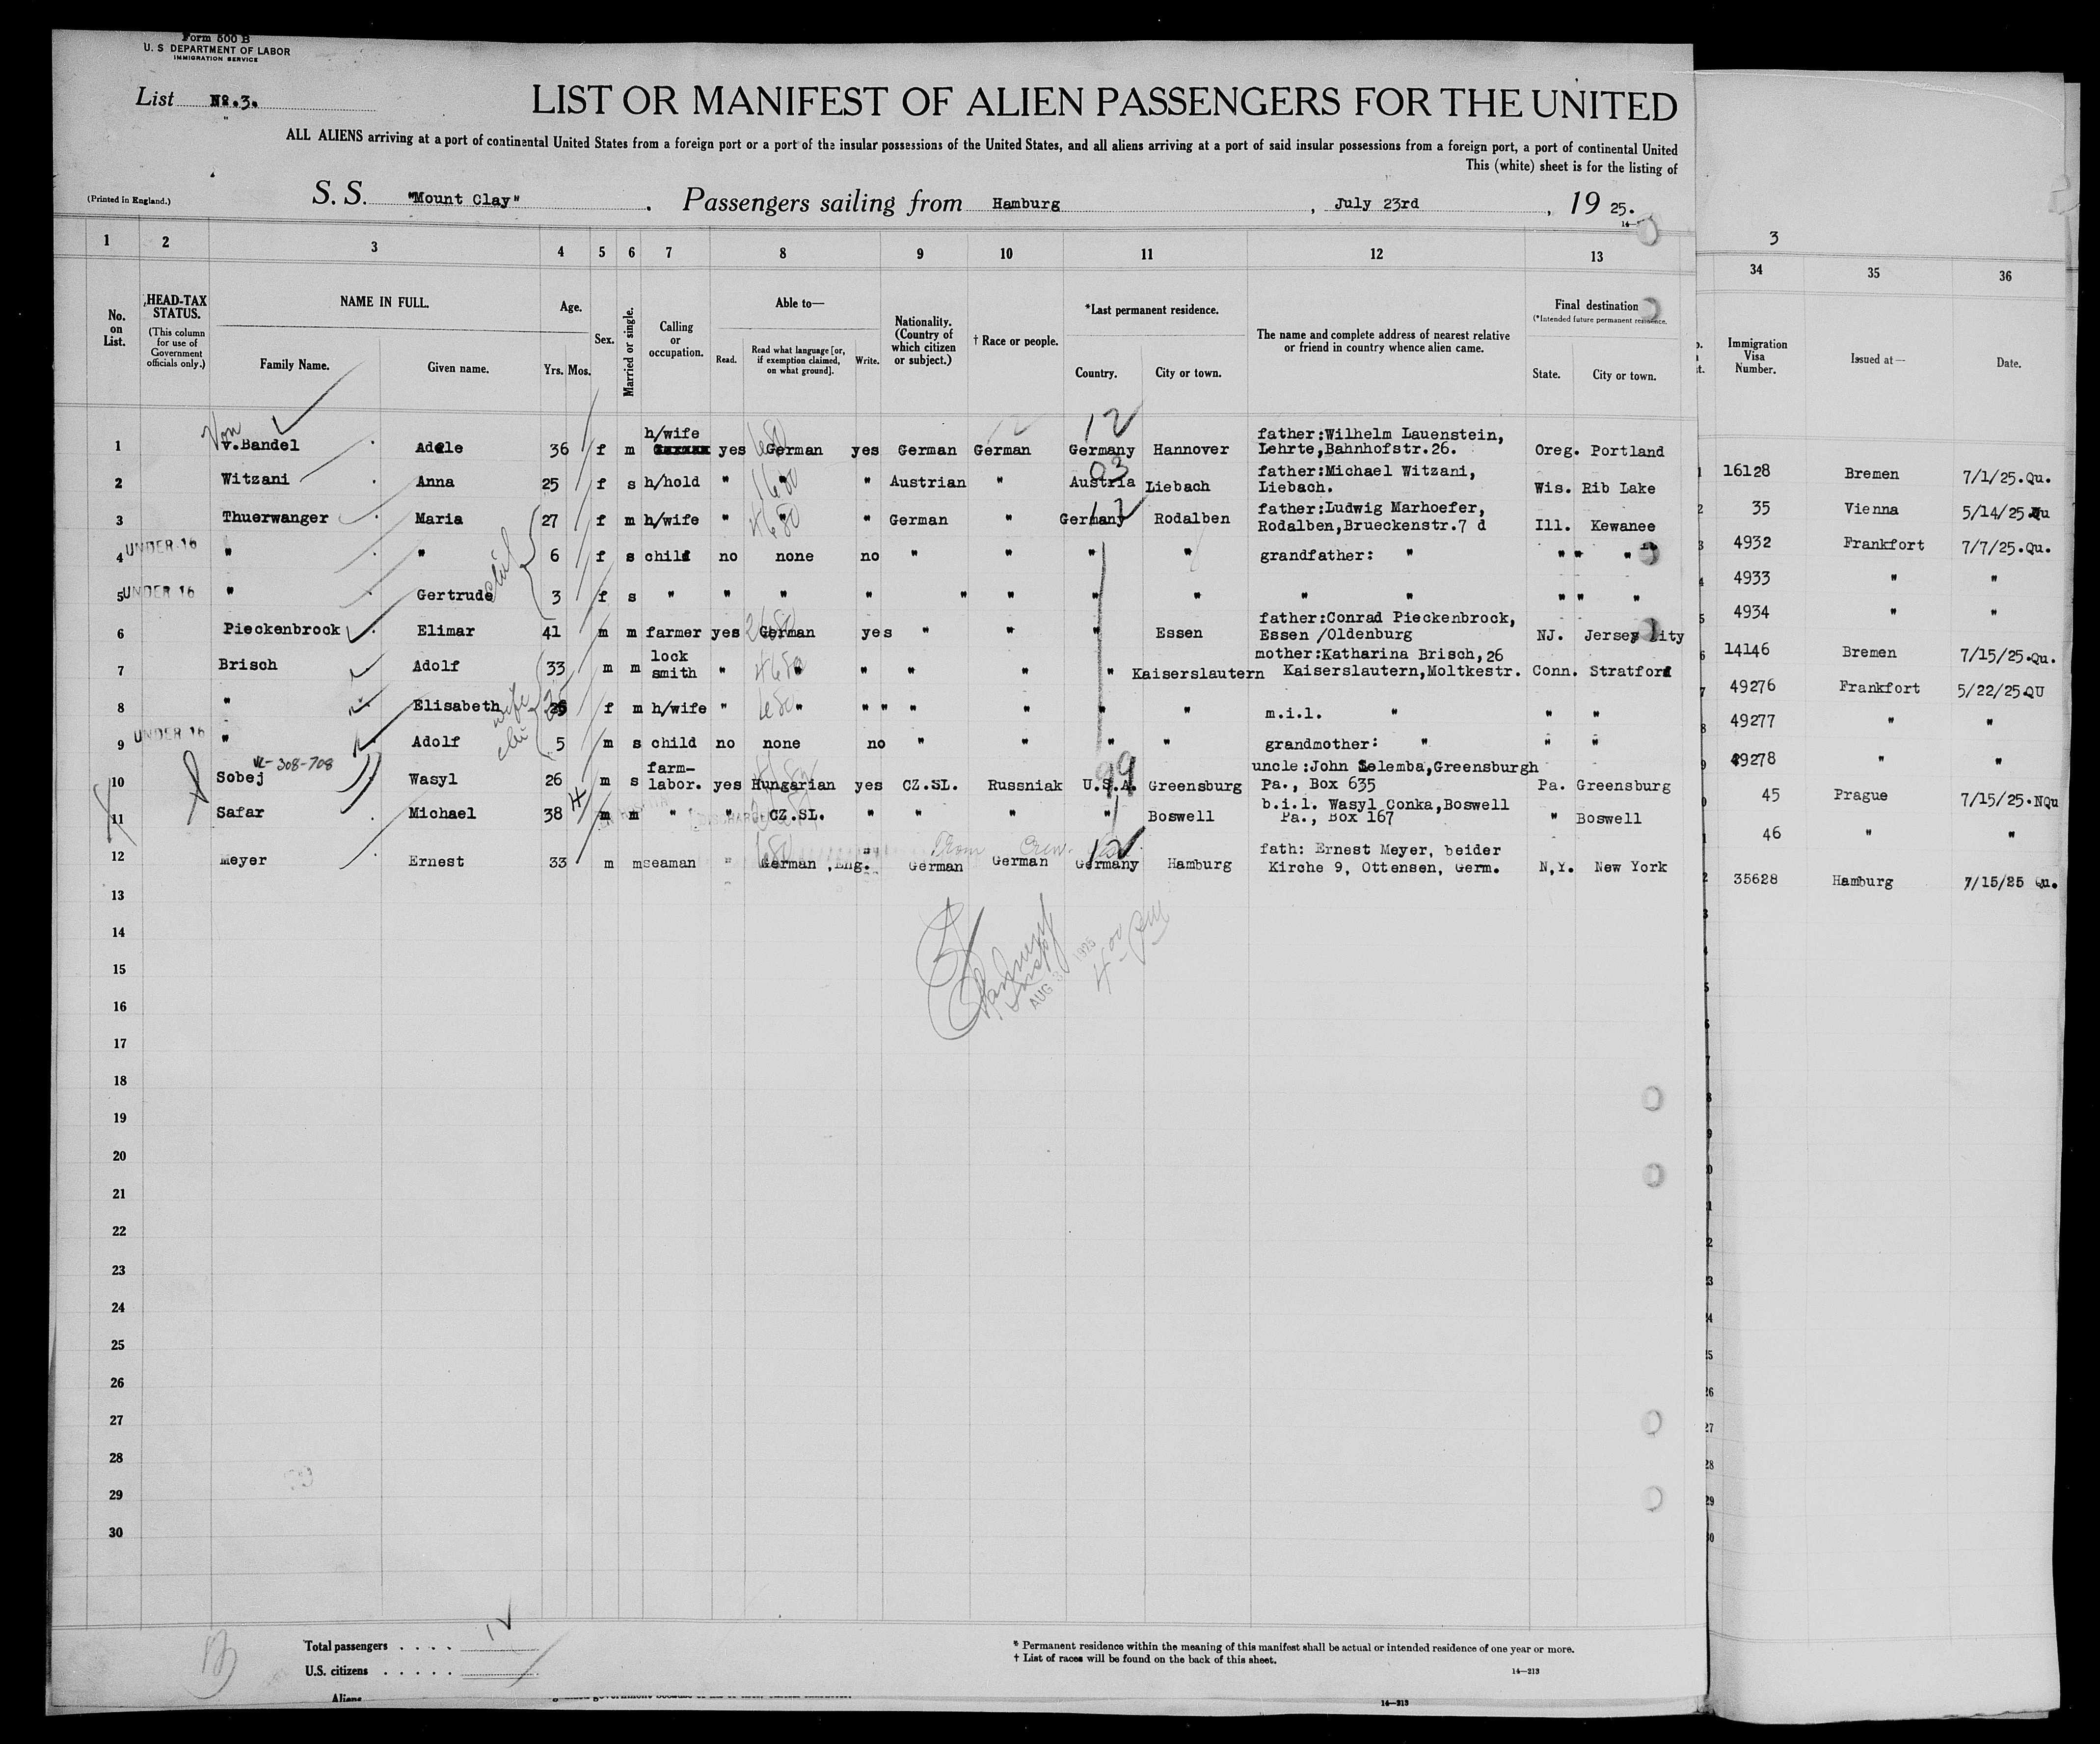 Form 500 B
U. S DEPARTMENT OF LABOR
IMMIGRATION SERVICE
List No.3.
LIST OR MANIFEST OF ALIEN PASSENGERS FOR THE UNITED
ALL ALIENS arriving at a port of continental United States from a foreign port or a port of the insular possessions of the United States, and all aliens arriving at a port of said insular possessions from a foreign port, a port of continental United
This (white) sheet is for the listing of
(Printed in England.)
S. S. "Mount Clay". Passengers sailing from Hamburg, July 23rd, 1925.
1 2 3 4 5 6 7 8 9 10 11 12 13
3
34 35 36
No. on List.
HEAD-TAX STATUS.
(This column for use of Government officials only.)
NAME IN FULL.
Family Name. Given name.
Age.
Yrs. Mos.
Sex.
Married or single.
Calling or occupation.
Able to—
Read. Read what language [or, if exemption claimed, on what ground]. Write.
Nationality. (Country of which citizen or subject.)
† Race or people.
*Last permanent residence.
Country. City or town.
The name and complete address of nearest relative or friend in country whence alien came.
Final destination
(*Intended future permanent residence.
State. City or town.
Immigration Visa Number.
Issued at—
Date.
Von
1 v.Bandel Adele 36 f m h/wife yes German yes German German Germany Hannover father:Wilhelm Lauenstein, Lehrte,Bahnhofstr.26. Oreg. Portland
2 Witzani Anna 25 f s h/hold " " " Austrian " Austria Liebach father:Michael Witzani, Liebach. Wis. Rib Lake
3 Thuerwanger Maria 27 f m h/wife " " " German " Germany Rodalben father:Ludwig Marhoefer, Rodalben,Brueckenstr.7 d Ill. Kewanee
4 UNDER 16 " " 6 f s child no none no " " " " grandfather: " " " "
5 UNDER 16 " Gertrude 3 f s " " " " " " " " " " " " "
6 Pieckenbrock Elimar 41 m m farmer yes German yes " " " Essen father:Conrad Pieckenbrock, Essen /Oldenburg NJ. Jersey City
7 Brisch Adolf 33 m m lock smith " " " " " " Kaiserslautern mother:Katharina Brisch,26 Kaiserslautern,Moltkestr. Conn. Stratford
8 " Elisabeth wife f m h/wife " " " " " " " " m.i.l. " " "
9 UNDER 16 " Adolf 5 m s child no none no " " " " grandmother: " " "
308-708
10 Sobej Wasyl 26 m s farm-labor. yes Hungarian yes CZ.SL. Russniak U.S.A. Greensburg uncle:John Selemba,Greensburgh Pa., Box 635 Pa. Greensburg
11 Safar Michael 38 m m " " CZ.SL. " " " " Boswell b.i.l. Wasyl Conka,Boswell Pa., Box 167 " Boswell
12 Meyer Ernest 33 m m seaman " German ,Eng. " German German Germany Hamburg fath: Ernest Meyer, beider Kirche 9, Ottensen, Germ. N,Y. New York
16128 Bremen 7/1/25.Qu.
35 Vienna 5/14/25.Qu
4932 Frankfort 7/7/25.Qu.
4933 " "
4934 " "
14146 Bremen 7/15/25.Qu.
49276 Frankfort 5/22/25.QU
49277 " "
49278 " "
45 Prague 7/15/25.NQu
46 " "
35628 Hamburg 7/15/25 Qu.
13
14
AUG 3 1925
4 00 PM
15
16
17
18
19
20
21
22
23
24
25
26
27
28
29
30
Total passengers . . . . 12
U.S. citizens . . . . .
Aliens
* Permanent residence within the meaning of this manifest shall be actual or intended residence of one year or more.
† List of races will be found on the back of this sheet.
14—213
14—213